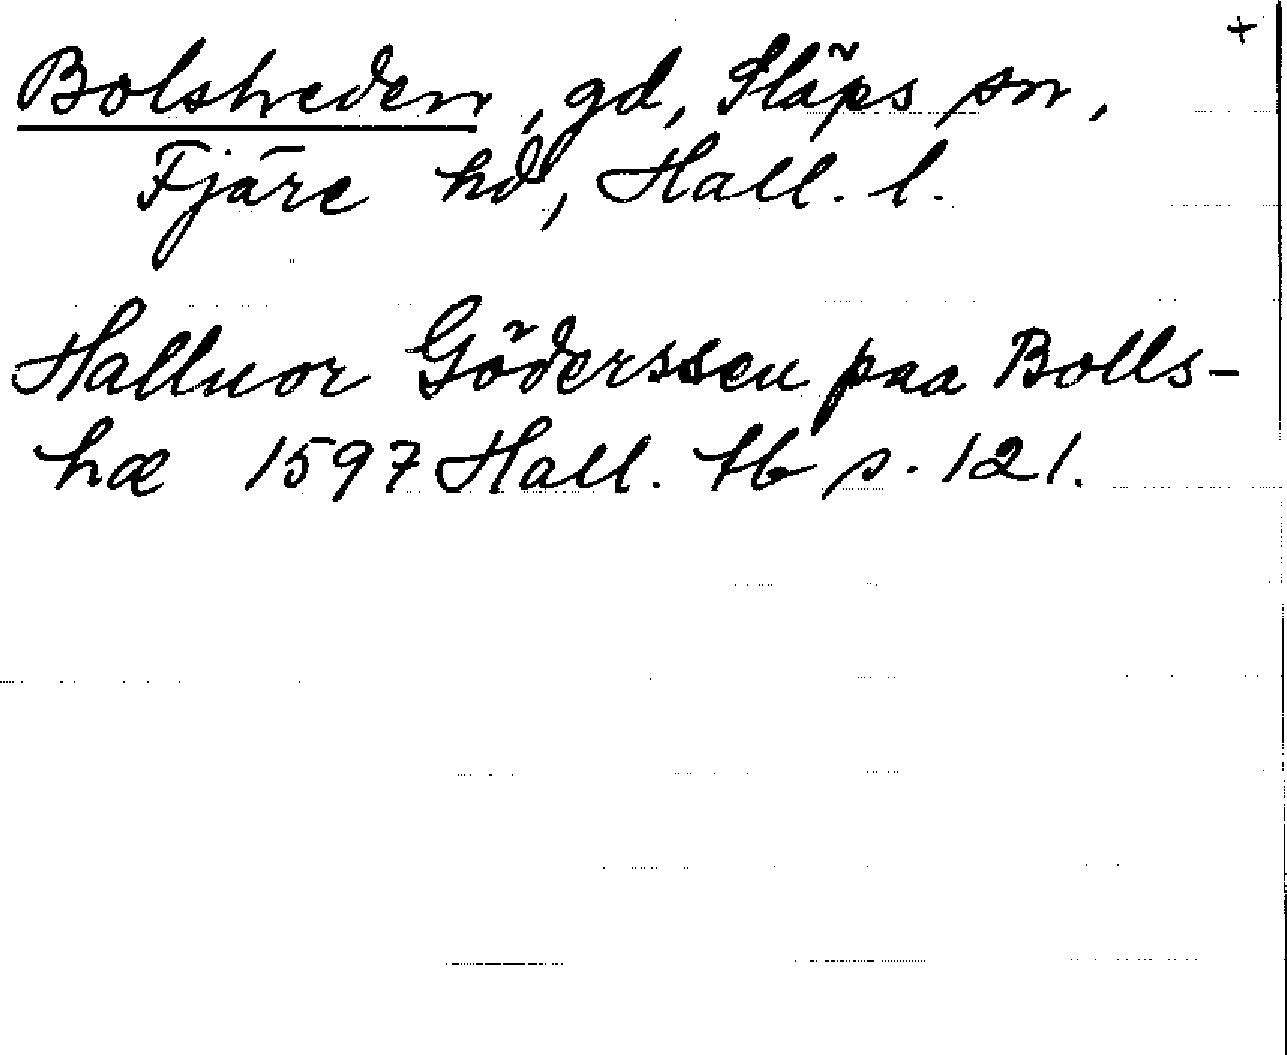 +
Bolsheden, gd, Släps sn,
Fjäre hd, Hall. l.
Halluor Göderssen paa Bolls-
hæ 1597 Hall. tb s. 121.